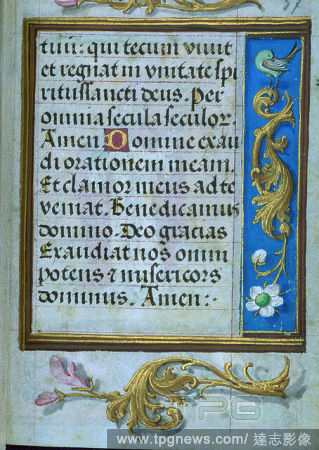 37
tuu: qui tecum viuit
et regnat in vnitate spi
ritussancti deus. Per
omnia secula seculor.
Amen Domine exau
di orationem meam.
Et clamor meus ad te
veniat. Benedicamus
domino. Deo gracias
Exaudiat nos omni
potens ⁊ misericors
dominus. Amen:·
PG
www.tpgnews.com/ 達志影像